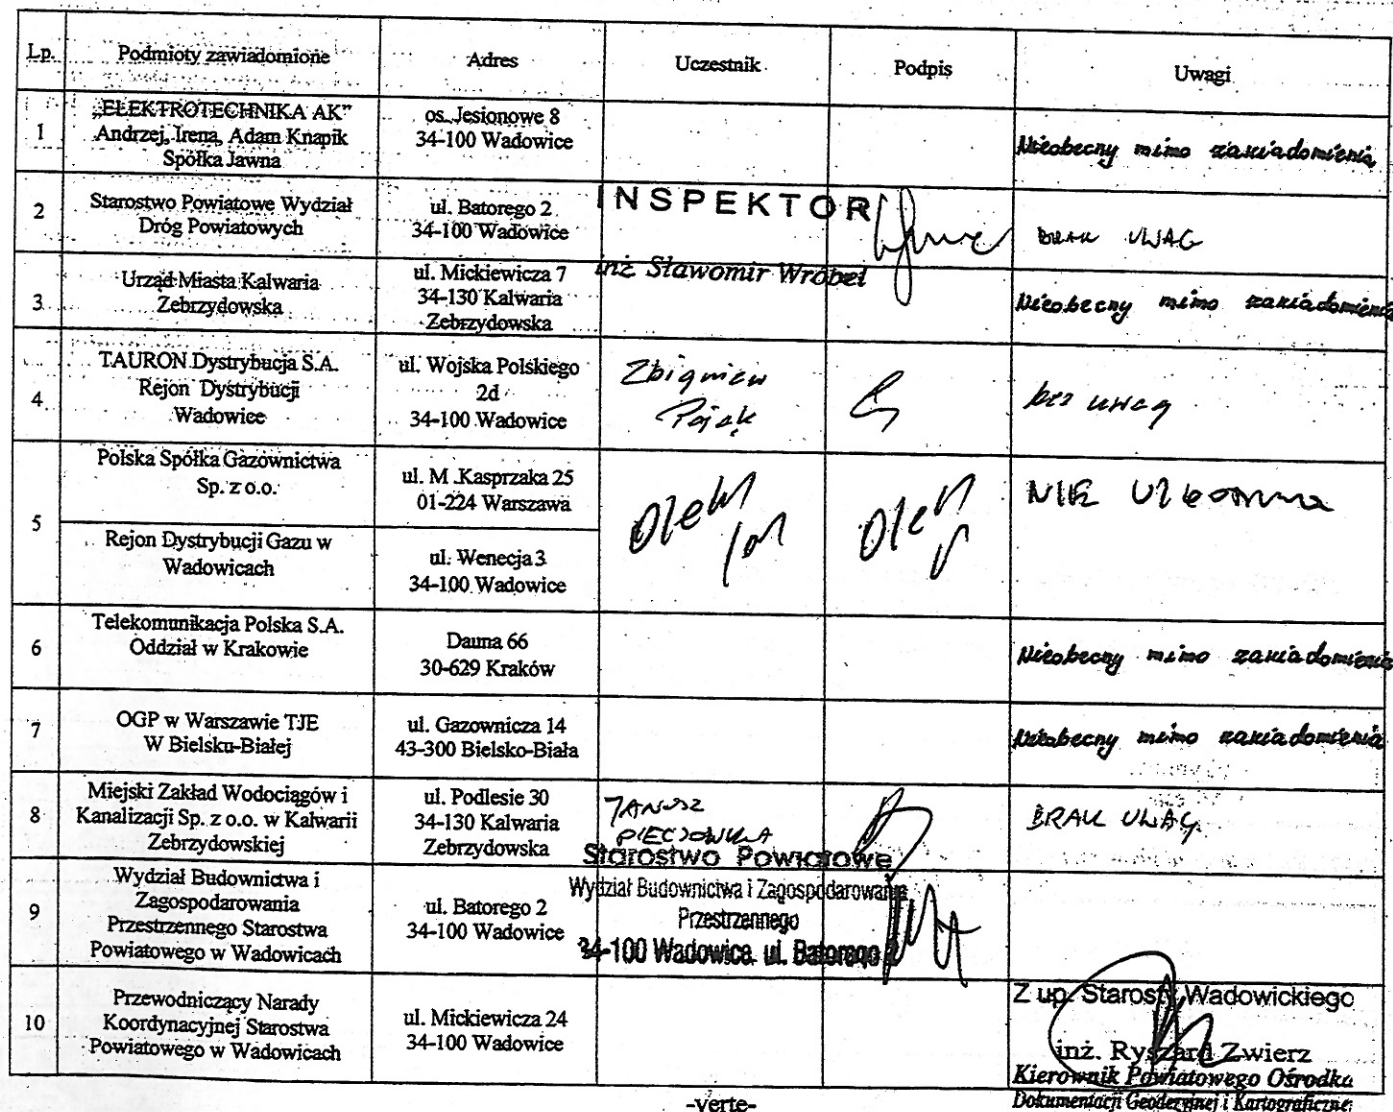 Lp. Podmioty zawiadomione Adres Uczestnik Podpis Uwagi
1
„ELEKTROTECHNIKA AK”
Andrzej, Irena, Adam Knapik
Spółka Jawna
os. Jesionowe 8
34-100 Wadowice
Nieobecny mimo zawiadomienia
2
Starostwo Powiatowe Wydział
Dróg Powiatowych
ul. Batorego 2
34-100 Wadowice
INSPEKTOR
inż. Sławomir Wróbel
BRAK UWAG
3
Urząd Miasta Kalwaria
Zebrzydowska
ul. Mickiewicza 7
34-130 Kalwaria
Zebrzydowska
Nieobecny mimo zawiadomienia
4
TAURON Dystrybucja S.A.
Rejon Dystrybucji
Wadowice
ul. Wojska Polskiego
2d
34-100 Wadowice
Zbigniew
Pająk
bez uwag
5
Polska Spółka Gazownictwa
Sp. z o.o.
ul. M. Kasprzaka 25
01-224 Warszawa
Rejon Dystrybucji Gazu w
Wadowicach
ul. Wenecja 3
34-100 Wadowice
NIE
6
Telekomunikacja Polska S.A.
Oddział w Krakowie
Dauna 66
30-629 Kraków
Nieobecny mimo zawiadomienia
7
OGP w Warszawie TJE
W Bielsku-Białej
ul. Gazownicza 14
43-300 Bielsko-Biała
Nieobecny mimo zawiadomienia
8
Miejski Zakład Wodociągów i
Kanalizacji Sp. z o.o. w Kalwarii
Zebrzydowskiej
ul. Podlesie 30
34-130 Kalwaria
Zebrzydowska
JANUSZ
BRAK UWAG
9
Wydział Budownictwa i
Zagospodarowania
Przestrzennego Starostwa
Powiatowego w Wadowicach
ul. Batorego 2
34-100 Wadowice
Starostwo Powiatowe
Wydział Budownictwa i Zagospodarowania
Przestrzennego
34-100 Wadowice. ul. Batorego 2
10
Przewodniczący Narady
Koordynacyjnej Starostwa
Powiatowego w Wadowicach
ul. Mickiewicza 24
34-100 Wadowice
Z up. Starosty Wadowickiego
inż. Ryszard Zwierz
Kierownik Powiatowego Ośrodka
Dokumentacji Geodezyjnej i Kartograficznej
-verte-